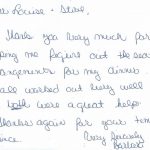 Louise + Steve,
Thank you very much for
ping me figure out the sea
angements for my dinner.
all worked out very well
both were a great help.
Thanks again for your tim
Very Sincerely
Barbara